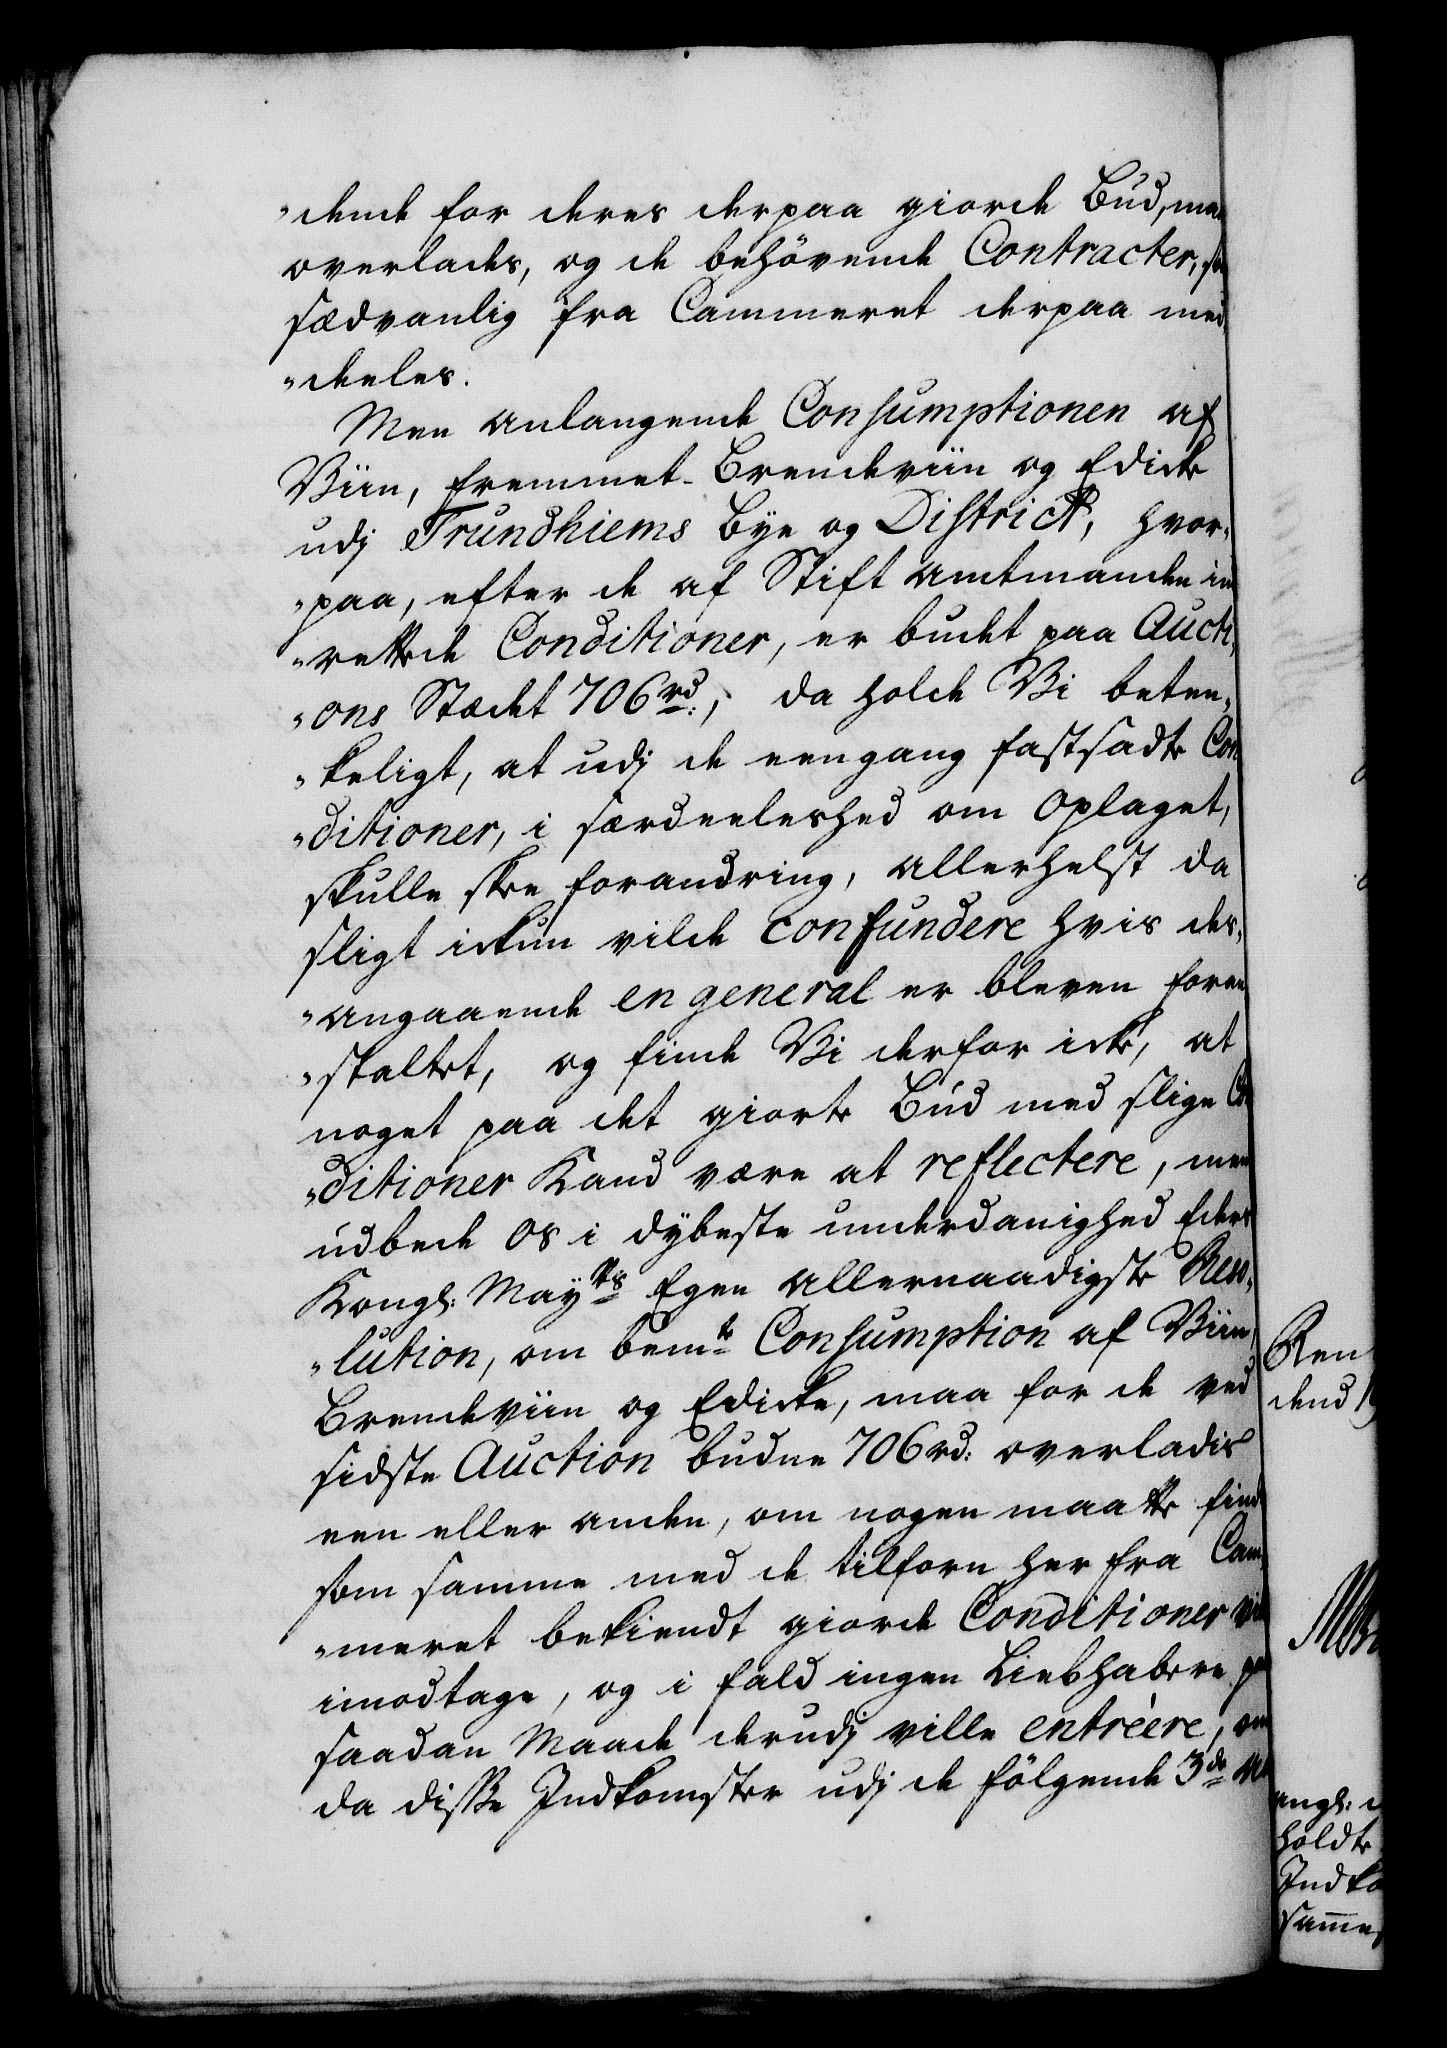 "dende for deres derpaa giorde Bud, maa
overlades, og de behövende Contracter, som
sædvanlig fra Cammeret derpaa med¬
"deeles.
Men anlangende Consumptionen af
Viin, fremmet Brendeviin og Edicke
udj Trundhiems bye og District, hvor¬
"paa, efter de af Stift Amtmanden ind¬
"rettede Conditioner, er budet paa Aucti¬
"ons Stædet 706 rd:, da holde Vi beten¬
"keligt, at udj de eengang fastsadte Con
"ditioner, i særdeeleshed om Oplaget,
skulle skee forandring, allerhelst da
sligt ickun vilde confundere hvis des¬
"angaaende en general er bleven foran
"staltet, og finde Vi derfor icke, at
noget paa det giorte Bud med slige Con
"ditioner Kand være at reflectere, men
udbede os i dybeste underdanighed Eders
Kongl: Mayts Egen allernaadigste Reso¬
"lution, om bemte Consumption af Viin,
Brendeviin og Edicke, maa for de ved
sidste Auction budne 706 rd: overladis
een eller anden, om nogen maatte findes
som samme med de tilforn her fra Cam¬
"meret bekiendt giorde Conditioner vil
imodtage, og i fald ingen Liebhabere paa
saadan Maade derudj ville entréere, om
da disse Indkomster udj de fölgende 3de
Ren
dend
angl:
holdte
Indko
samme